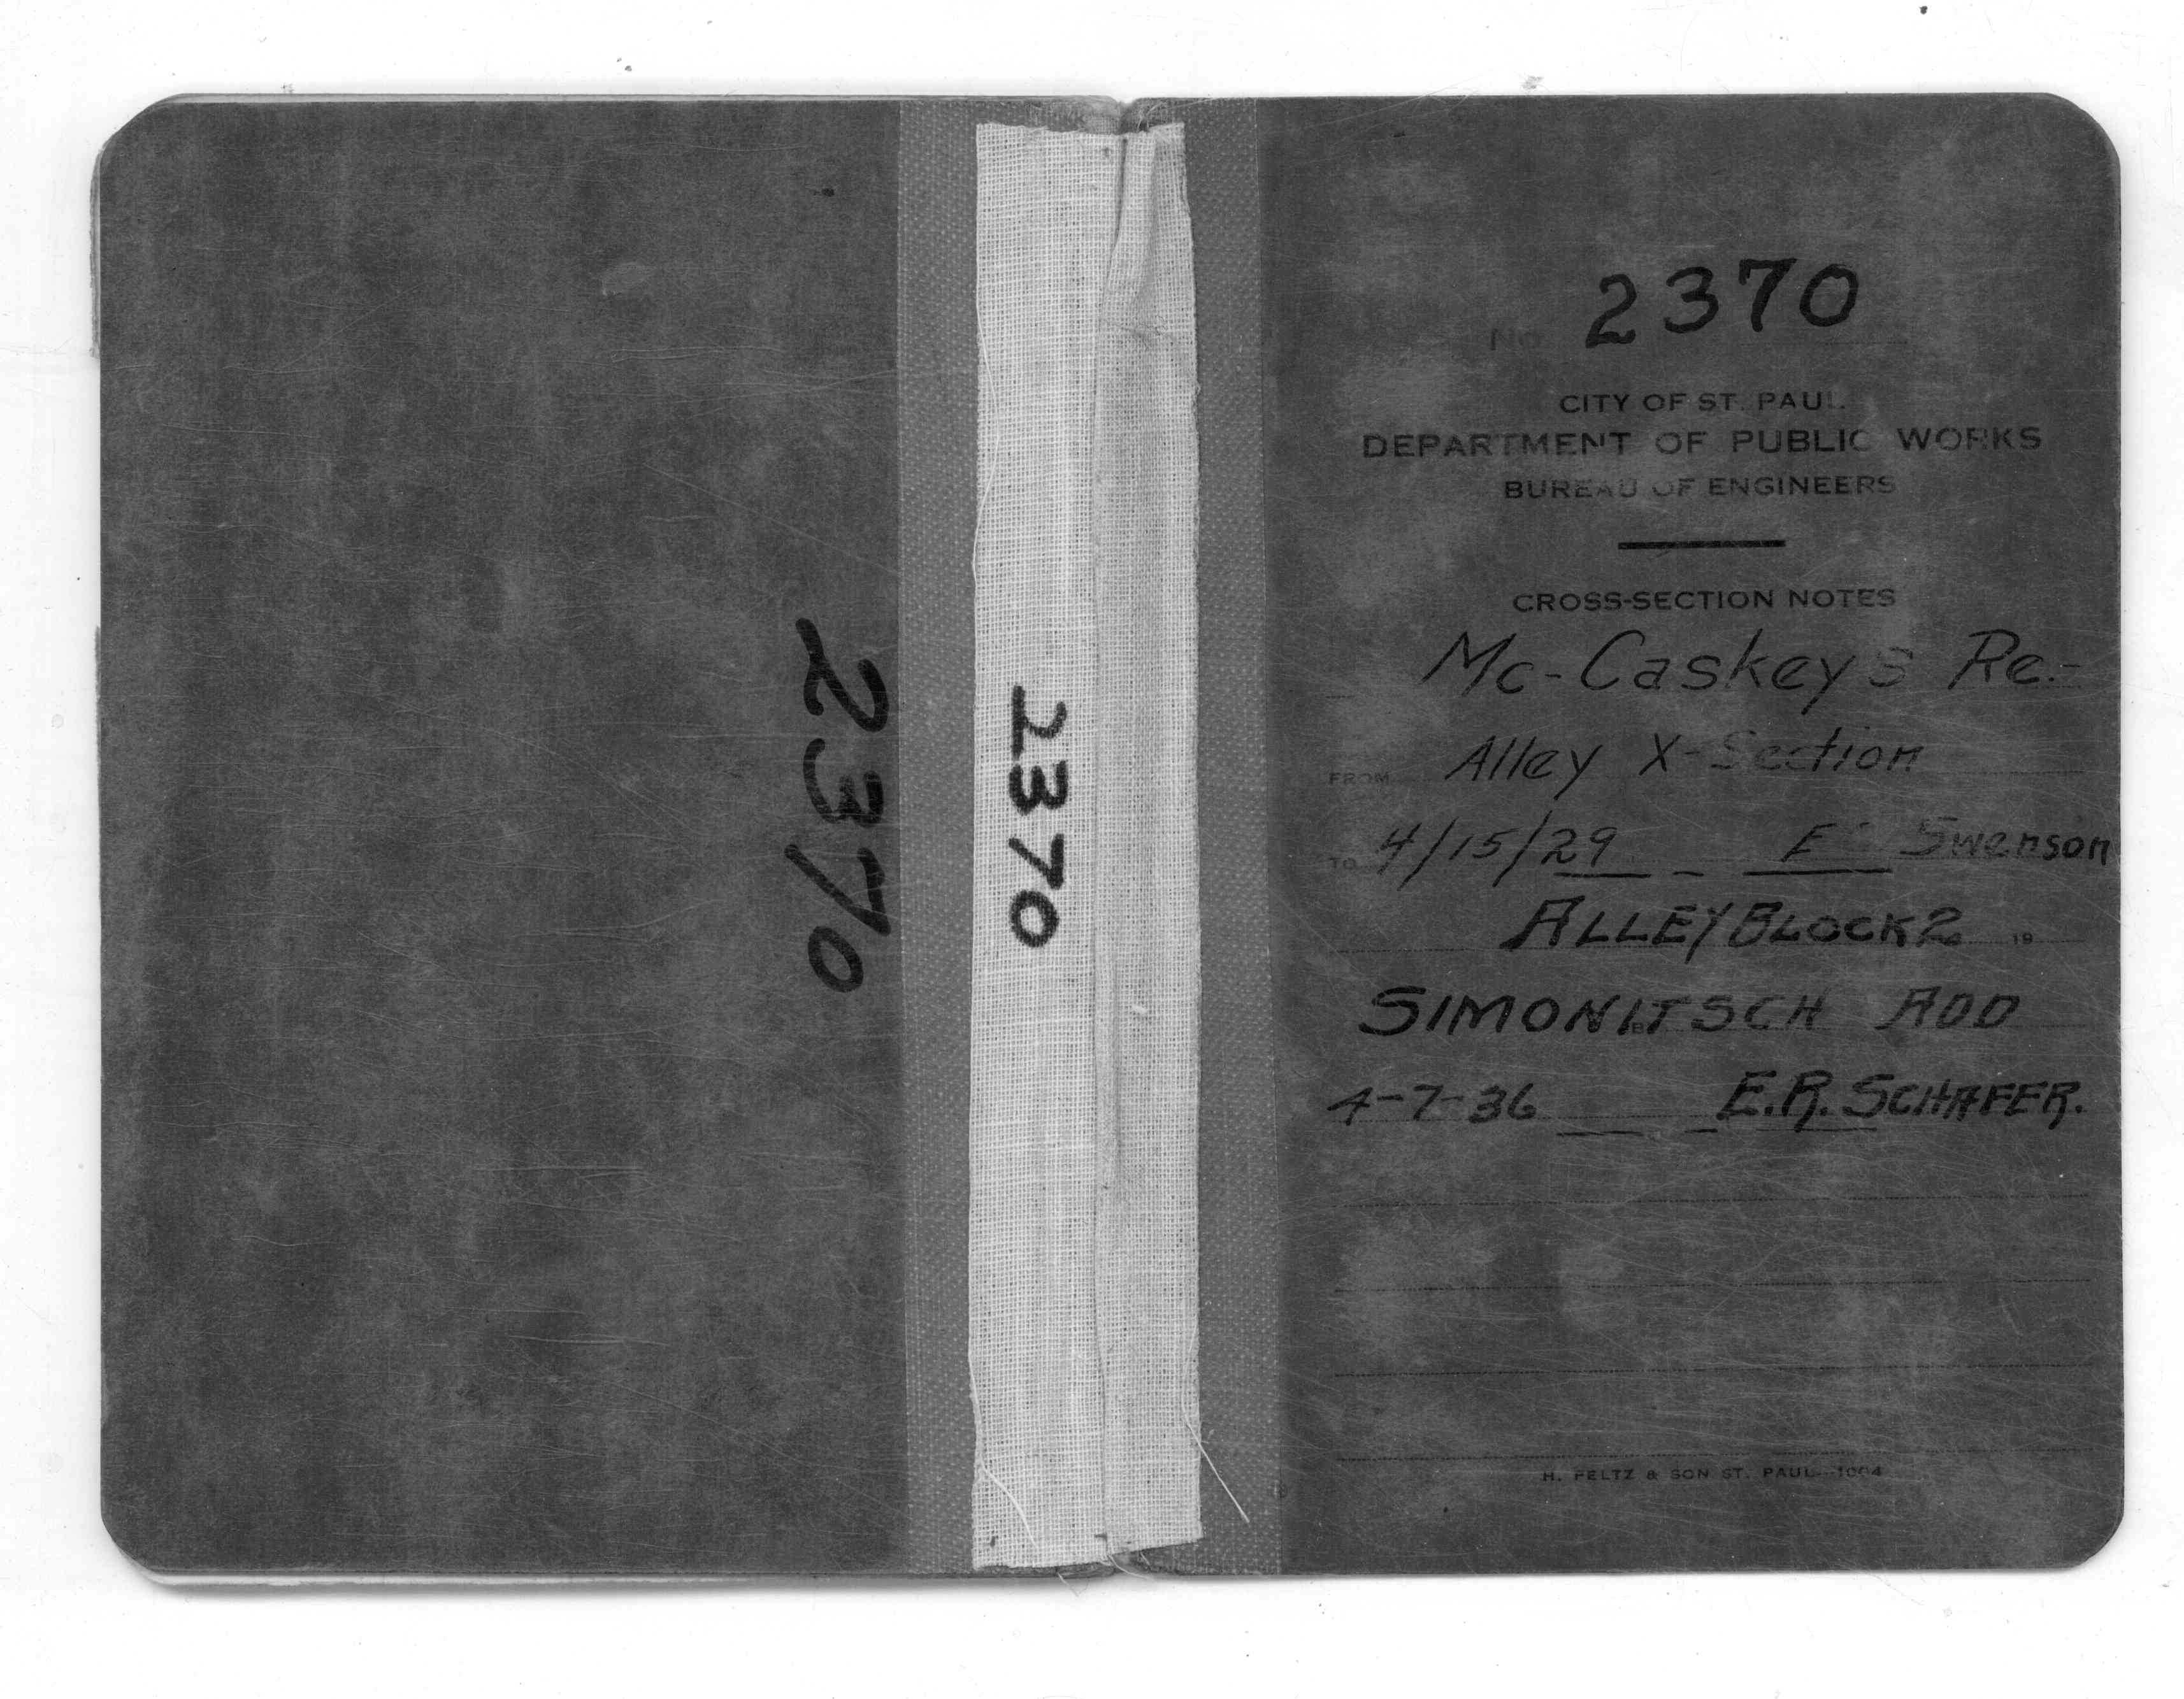 2370
2370
No. 2370
CITY OF ST. PAUL
DEPARTMENT OF PUBLIC WORKS
BUREAU OF ENGINEERS
CROSS-SECTION NOTES
Mc-Caskey's Re.-
FROM Alley X-Section
TO 4/15/29 E Swenson
ALLEY BLOCK 2 19
SIMONITSCH ADD
4-7-36 E.R. SCHAFER.
H. PELTZ & SON ST. PAUL